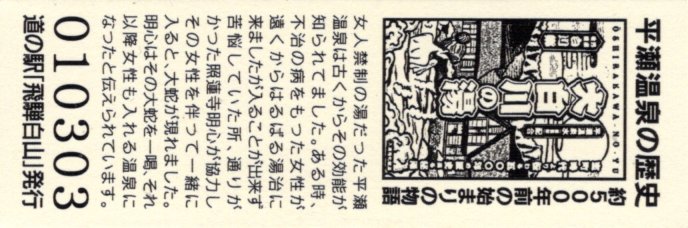 平瀬温泉の歴史
約500年前の始まりの物語
OSHIRAKAWA-NO-YU
大白川の湯
女人禁制の湯だった平瀬
温泉は古くからその効能が
知られてました。ある時、
不治の病をもった女性が
遠くからはるばる湯治に
来ましたが入ることが出来ず
苦悩していた所、通りが
かった照蓮寺明心が協力し
その女性を伴って一緒に
入ると、大蛇が現れました。
明心はその大蛇を一喝、それ
以降女性も入れる温泉に
なったと伝えられています。
010303
道の駅「飛騨白山」発行